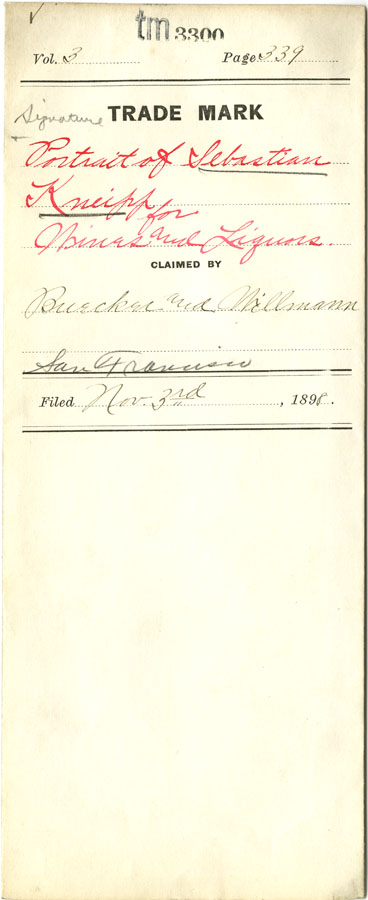 tm 3300
Vol. 3 Page 339
Signature +
TRADE MARK
Portrait of Sebastian
Kneipp for
Wines and Liquors.
CLAIMED BY
Buecker and Willmann
San Francisco
Filed Nov. 3rd, 1898.